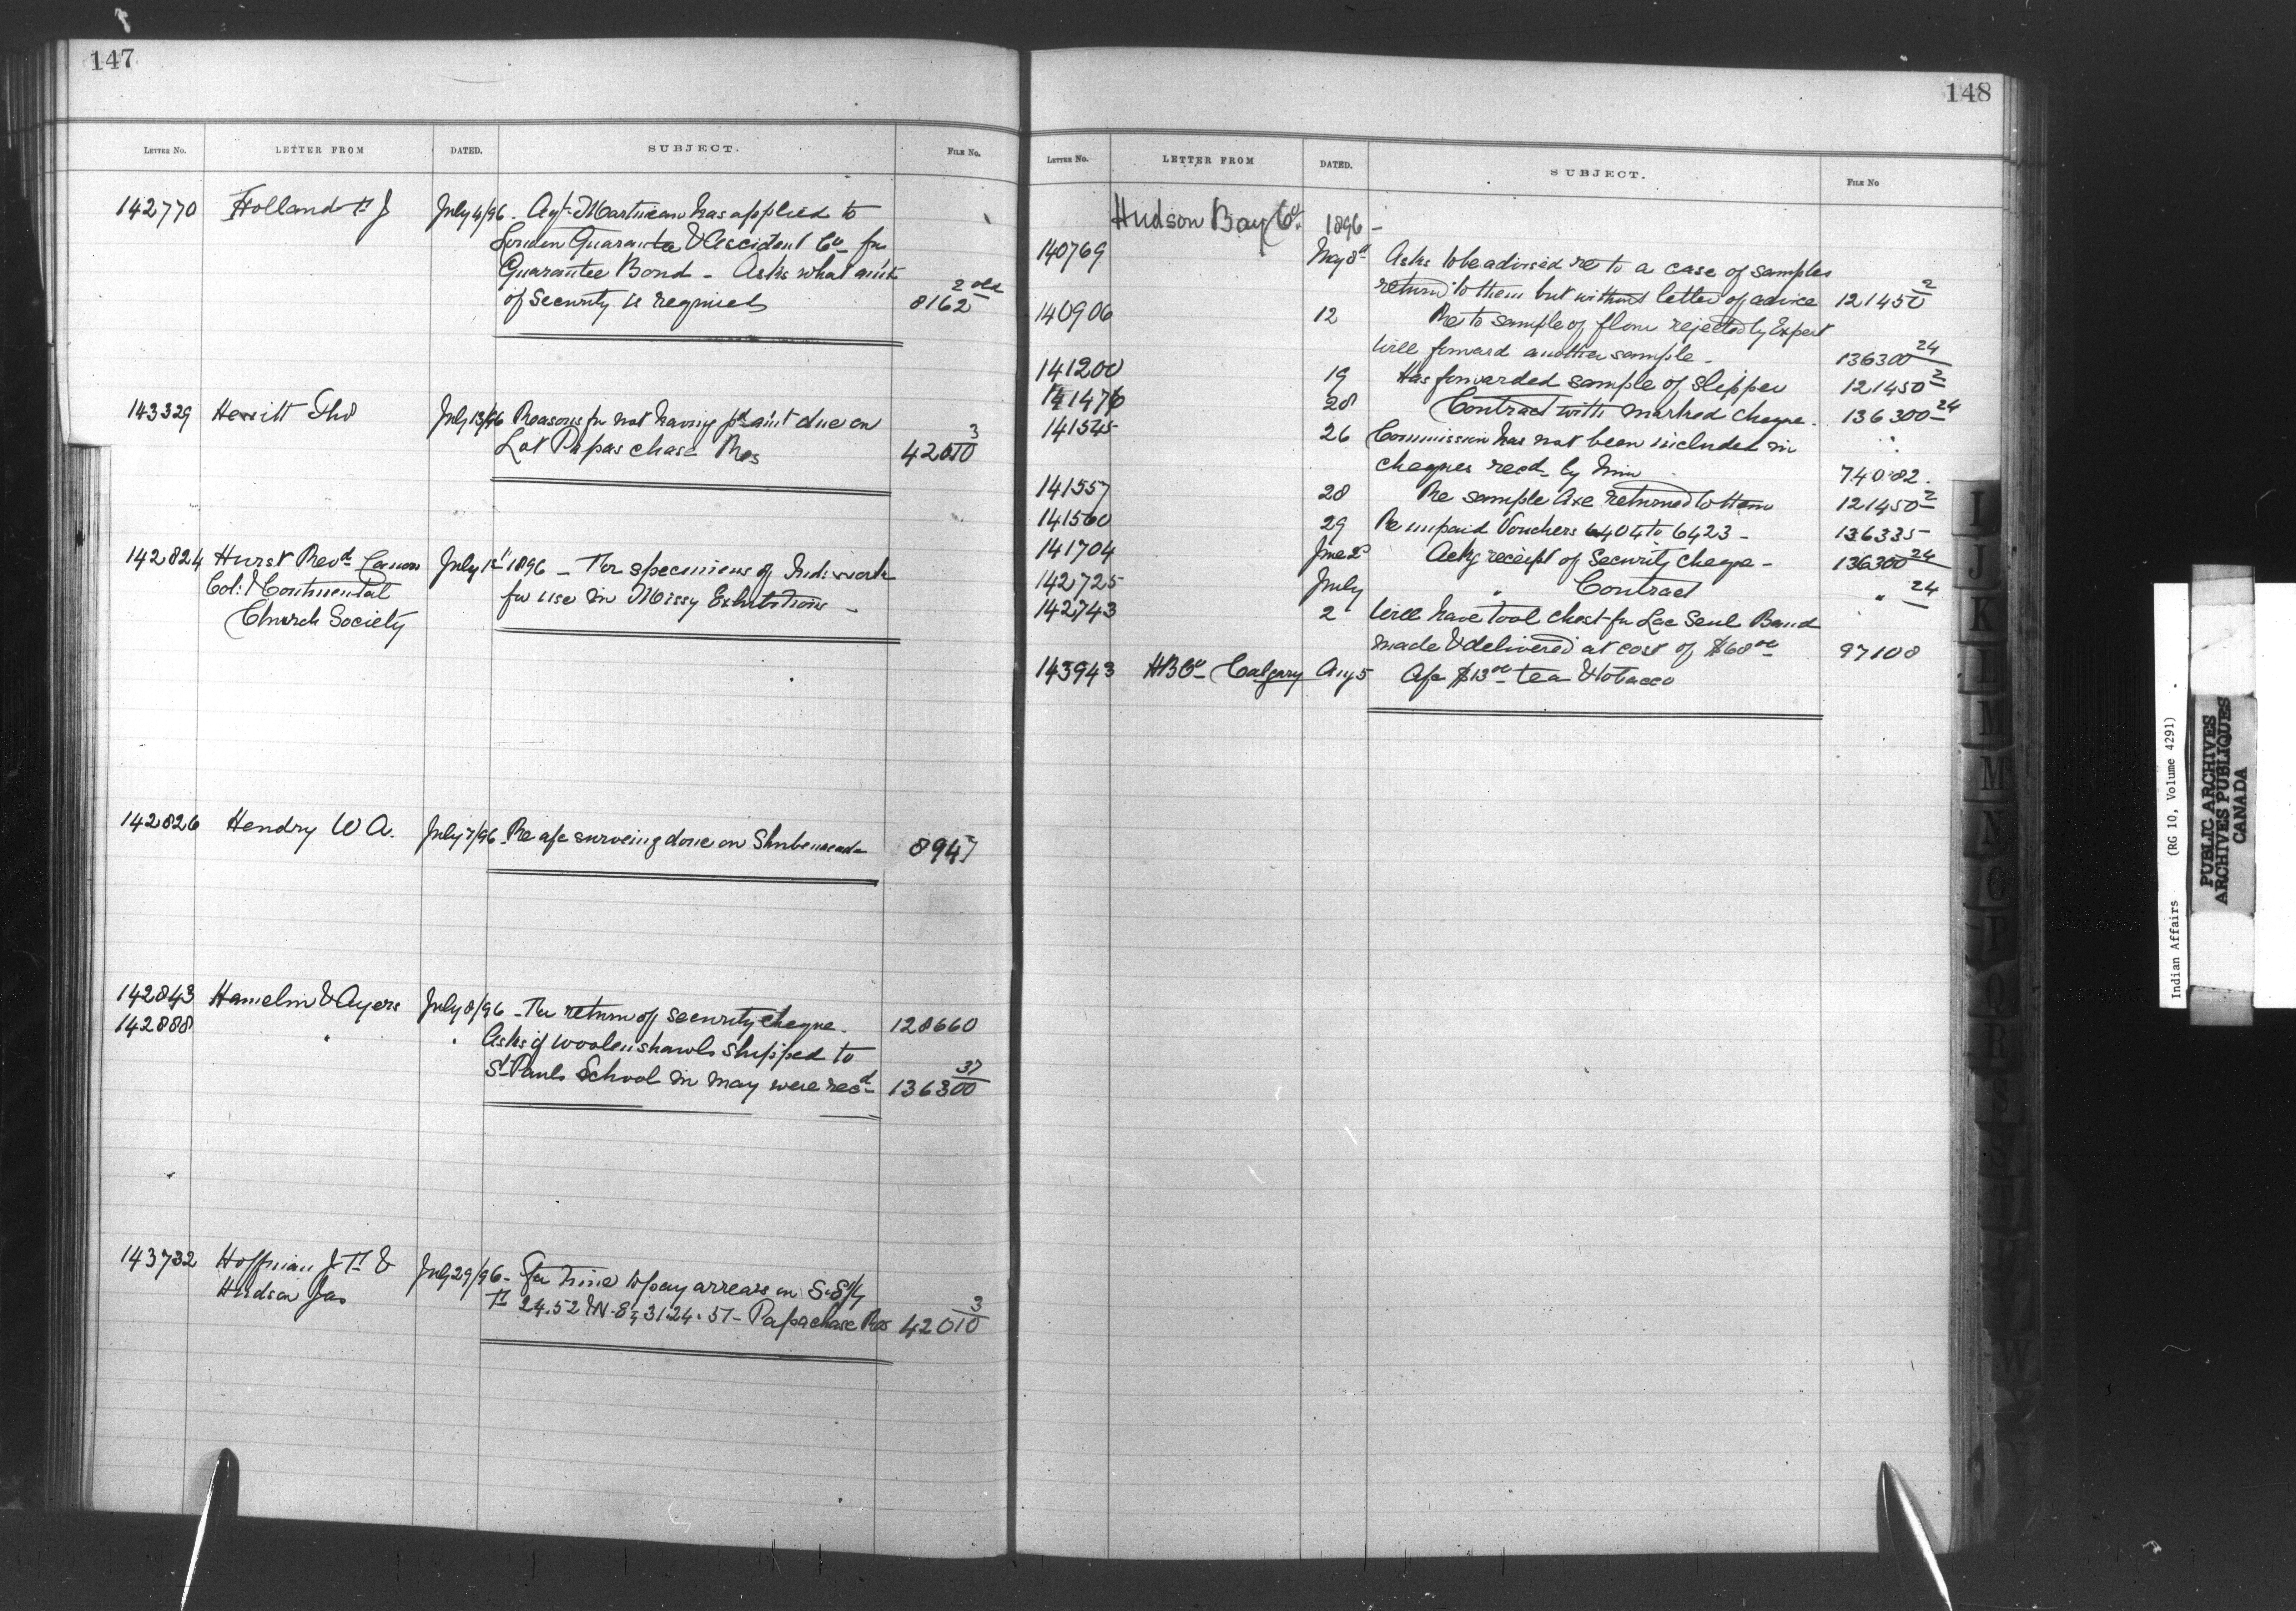 147
LETTER No. LETTER FROM DATED. SUBJECT. FILE No.
142770 Holland H J July 4/96. Agt Martineau has applied to
London Guarantee & Accident Co for
Guarantee Bond - Asks what am't
of Security is required 8162 2 old
143329 Hewitt Tho July 13/96 Reasons for not having pd am't due on
Lot Papaschase Res 42010 3
142824 Hurst Revd Canon July 1st 1896 - For specimens of Indn work
Col: & Continental for use in Missy Exhibitions -
Church Society
142826 Hendry W A. July 7/96 Re a/c surveing done on Shubenacad 8947
142843 Hamelin & Ayers July 8/96 - For return of security cheque. 128660
142888 " " Asks if woolen shawls shipped to
St Pauls School in May were recd 136300 37
143732 Hoffman J H & July 29/96 - For time to pay arrears on S. S 1/4
Hudson Jas 24.52 & N. E 1/4 31.24.51 - Papachase Res 42010 3
148
LETTER No. LETTER FROM DATED. SUBJECT. FILE No
Hudson Bay Co. 1896 -
140769 May 8 Asks to be advised re to a case of samples
return'd to them but without letter of advice 121450 2
140906 12 Re to sample of flour rejected by Expert
Will forward another sample - 136300 24
141200 19 Has forwarded sample of slipper 121450 2
141476 28 Contract with marked cheque. 136300 24
141545 26 Commission has not been included in
cheques recd by him 74082.
141557 28 Re sample Axe returned to them 121450 2
141560 29 Re unpaid Vouchers 6404 to 6423 - 136335
141704 June 2 Ackg receipt of Security cheque - 136300 24
142725 July " Contract " 24
142743 2 Will have tool chest for Lac Seul Band
made & delivered at cost of $68 00 97108
143943 H B Co Calgary Aug 5 A/c $13 00 tea & tobacco
I
J
K
L
M
M
N
O
P
Q
R
S
W
Indian Affairs (RG 10, Volume 4291)
PUBLIC ARCHIVES
ARCHIVES PUBLIQUES
CANADA